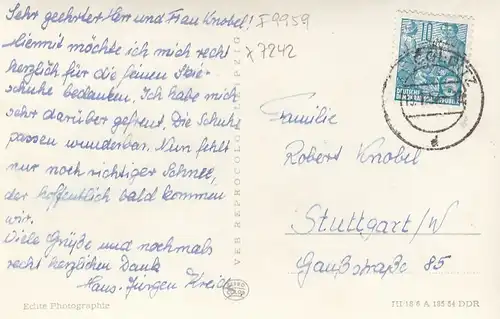 Sehr geehrter Herr und Frau Knobel!
F9959
Hiermit möchte ich mich recht
x7242
herzlich für die feinen Ski-
schuhe bedanken. Ich habe mich
sehr darüber gefreut. Die Schuhe
passen wunderbar. Nun fehlt
nur noch richtiger Schnee,
der hoffentlich bald kommen
wir.
Viele Grüße und nochmals
recht herzlichen Dank
Hans-Jürgen
Echte Photographie
VEB REPROCOLOR LEIPZIG
DEUTSCHE
Familie
Robert Knobel
Stuttgart/W
Gaußstraße 85
A 185 54 DDR